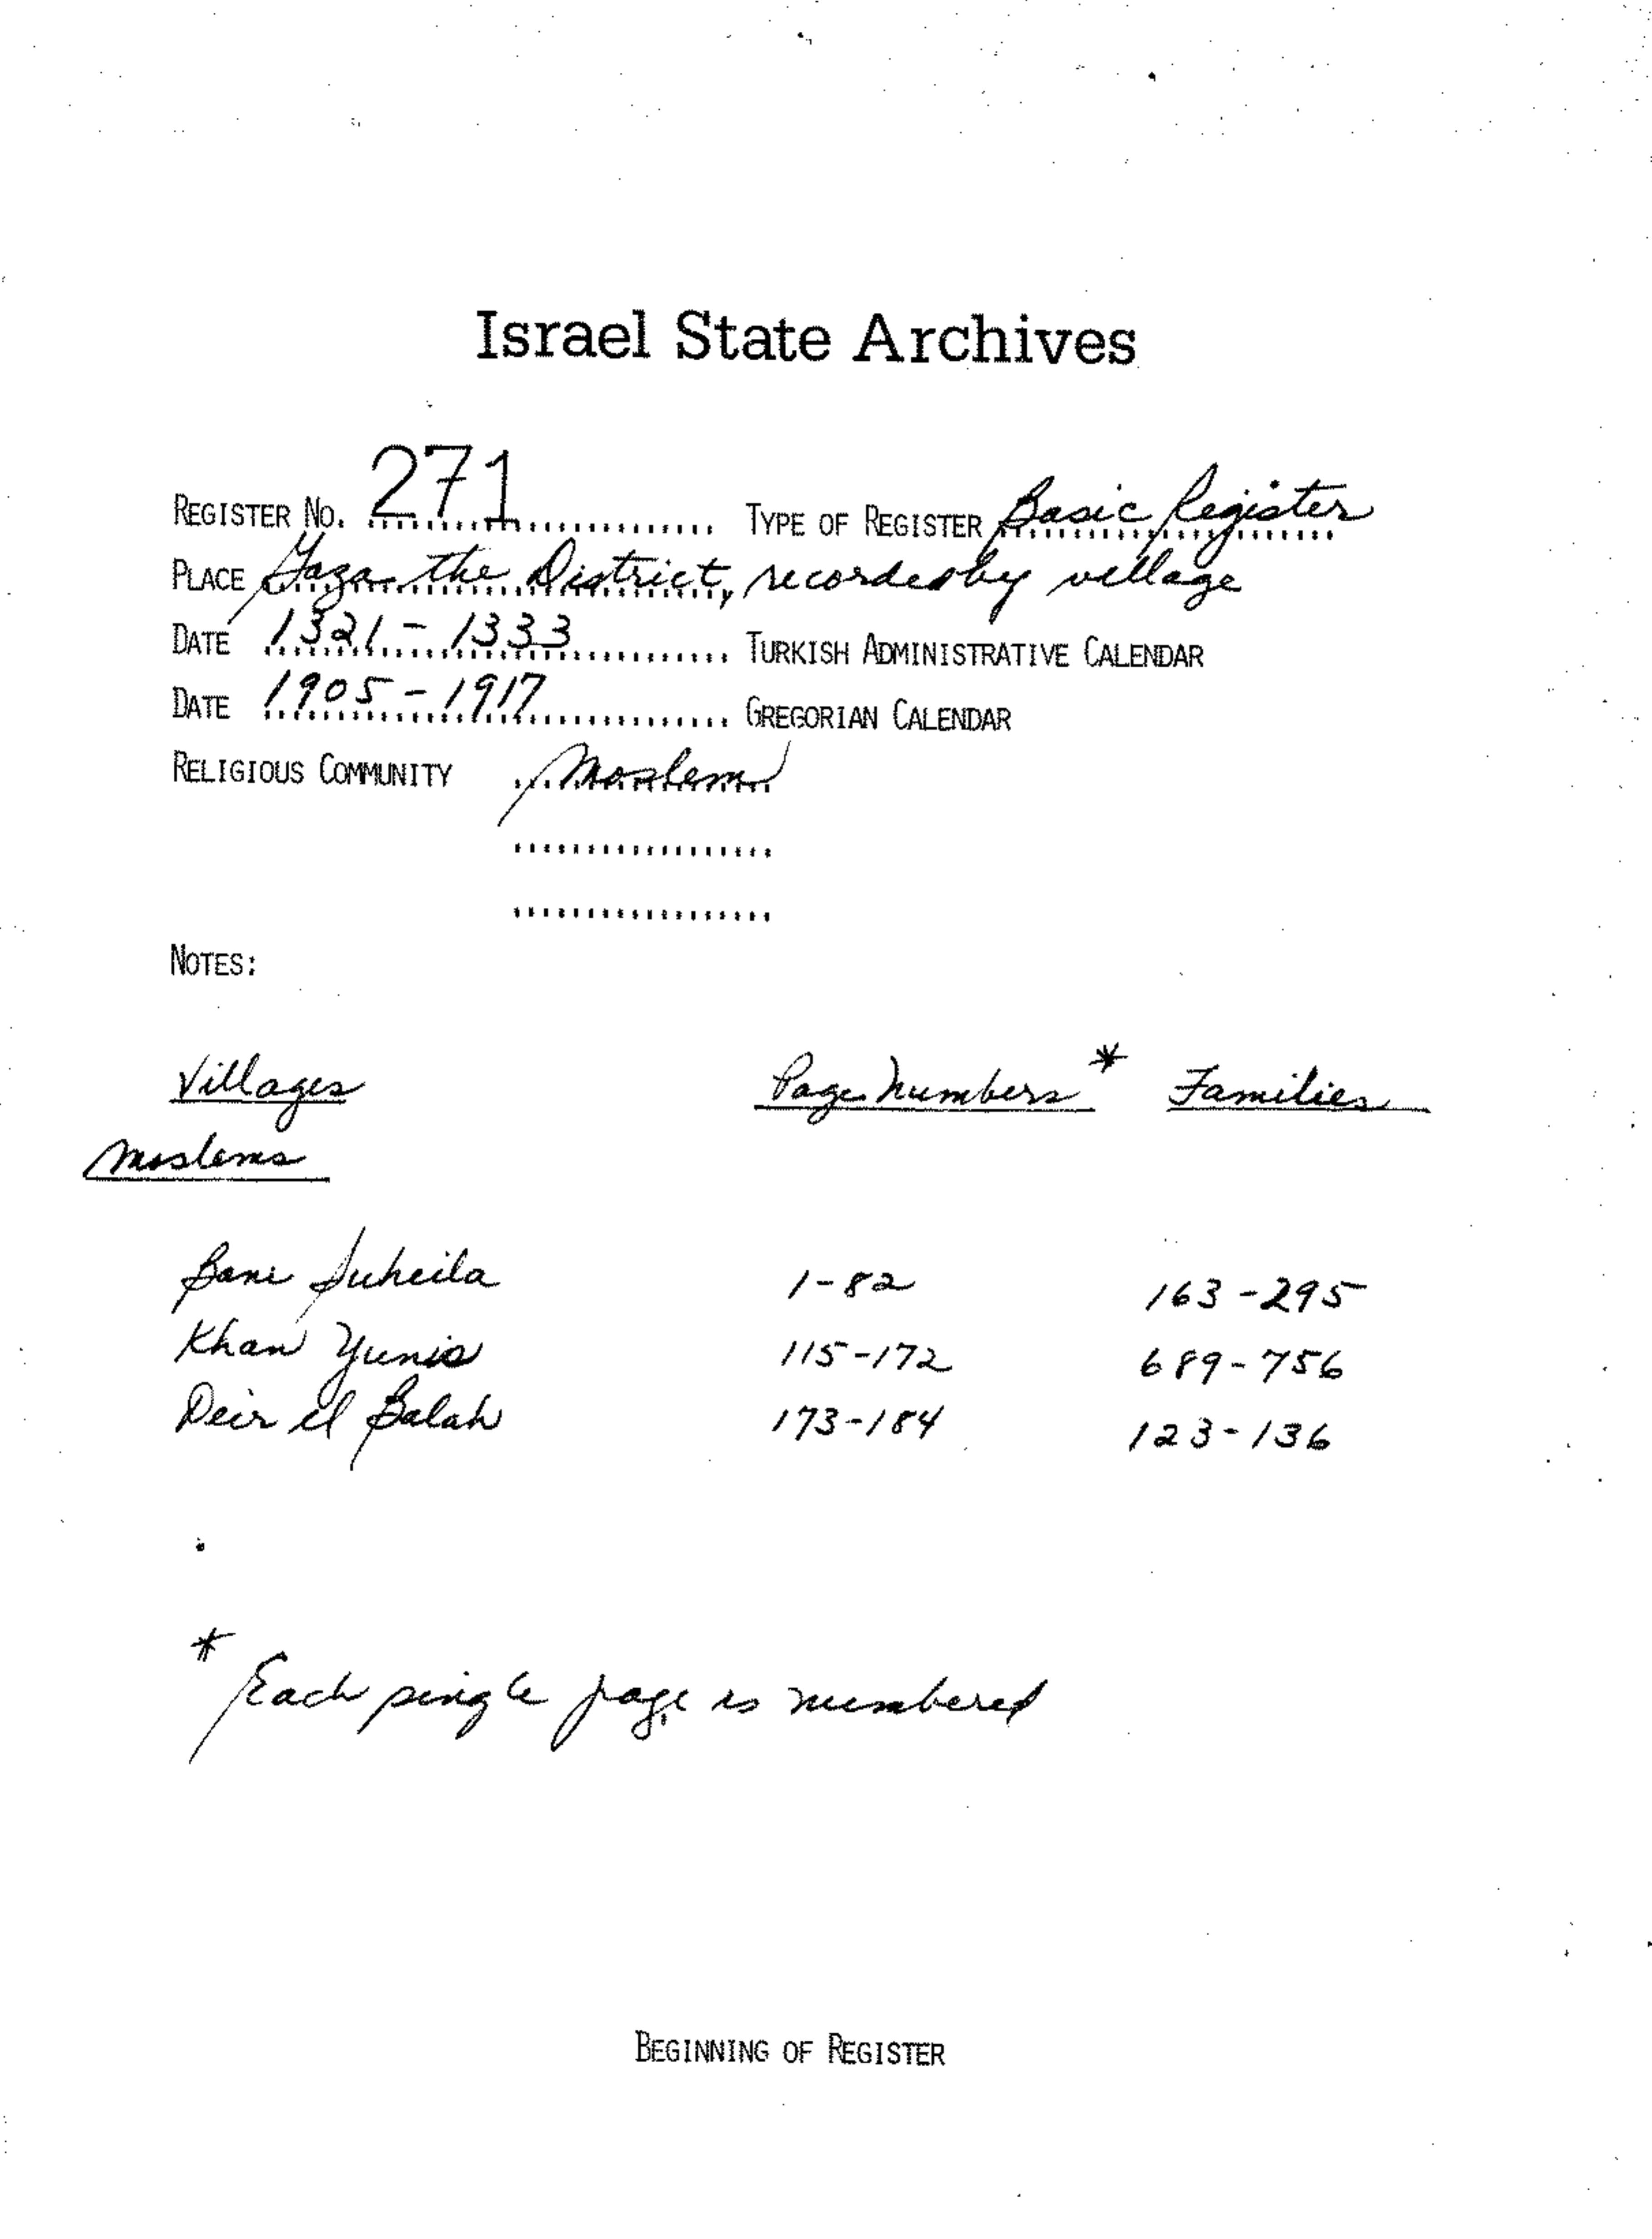 Israel State Archives
REGISTER NO. 271 TYPE OF REGISTER Basic Register
PLACE Gaza the District, recorded by village
DATE 1321 - 1333 TURKISH ADMINISTRATIVE CALENDAR
DATE 1905 - 1917 GREGORIAN CALENDAR
RELIGIOUS COMMUNITY Moslem
NOTES:
Villages Page Numbers * Families
Moslems
Bani Suheila 1-82 163-295
Khan Yunis 115-172 689-756
Deir el Balah 173-184 123-136
* Each single page is numbered
BEGINNING OF REGISTER